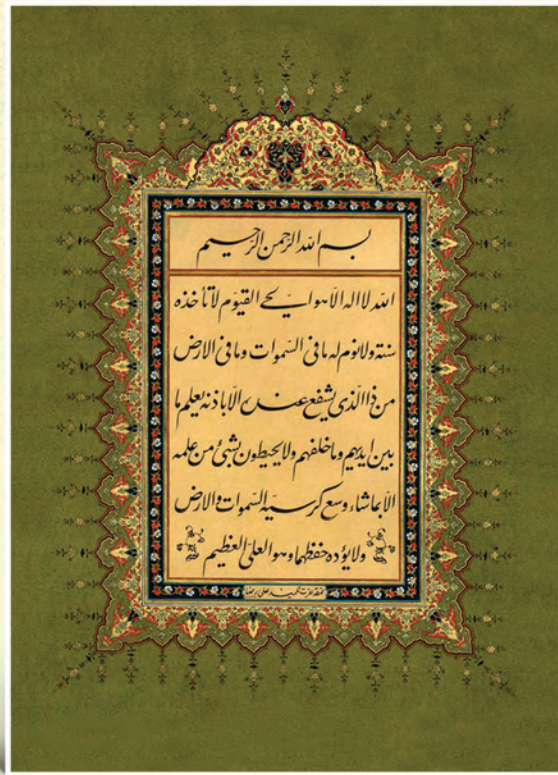 بسم الله الرحمن الرحیم
الله لا اله الا هو الحی القیوم لا تأخذه
سنة ولا نوم له ما فی السموات وما فی الارض
من ذا الذی یشفع عنده الا باذنه یعلم ما
بین ایدیهم وما خلفهم ولا یحیطون بشیئ من علمه
الا بما شاء وسع کرسیه السموات والارض
ولا یؤده حفظهما وهو العلی العظیم